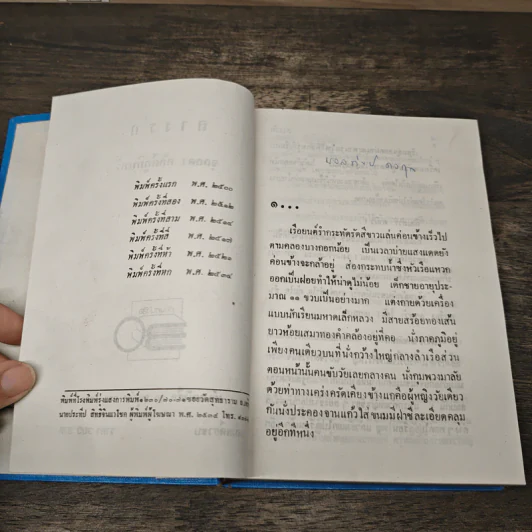 พิมพ์ครั้งแรก พ.ศ. ๒๕๐๐
พิมพ์ครั้งที่สอง พ.ศ. ๒๕๑๒
พิมพ์ครั้งที่สาม พ.ศ. ๒๕๑๔
พิมพ์ครั้งที่สี่ พ.ศ. ๒๕๑๗
พิมพ์ครั้งที่ห้า พ.ศ. ๒๕๒๑
พิมพ์ครั้งที่หก พ.ศ. ๒๕๓๔
พิมพ์ที่โรงพิมพ์รุ่งแสงการพิมพ์
ผู้พิมพ์ผู้โฆษณา พ.ศ. ๒๕๓๔ โทร.
๑...
เรือยนต์ร่ำกระทัดรัดสีขาวแล่นค่อนข้างเร็วไป
ตามคลองบางกอกน้อย เป็นเวลาบ่ายแสงแดดยัง
ค่อนข้างจะกล้าอยู่ ส่องกระทบน้ำซึ่งหัวเรือแหวก
ออกเป็นฝอยทำให้น่าดูไม่น้อย เด็กชายอายุประ-
มาณ ๑๑ ขวบเป็นอย่างมาก แต่งกายด้วยเครื่อง
แบบนักเรียนมหาดเล็กหลวง มีสายสร้อยทองเส้น
ยาวห้อยเสมาทองคำคล้องอยู่ที่คอ นั่งภาคภูมิอยู่
เพียงคนเดียวบนที่นั่งกว้างใหญ่กลางลำเรือส่วน
ตอนหน้านั้นคนขับวัยเลยกลางคน นั่งกุมพวงมาลัย
ด้วยท่าทางเคร่งครัดเคียงข้างแกคือผู้หญิงวัยเดียว
กันนั่งประคองจานแก้วใส่ขนมมีฝาชีละเอียดคลุม
อยู่อีกทีหนึ่ง